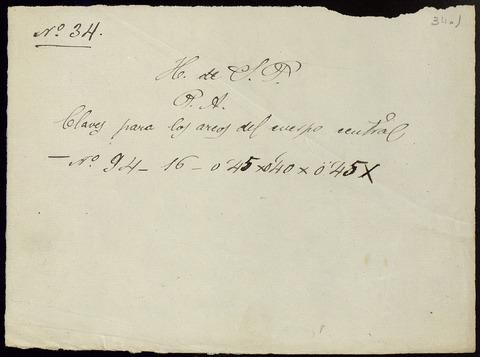 34a)
Nº 34.
H. de S. P.
P. A.
Claves para los arcos del cuerpo central
— Nº 94 – 16 – 0'45 x 0'40 x 0'45 X